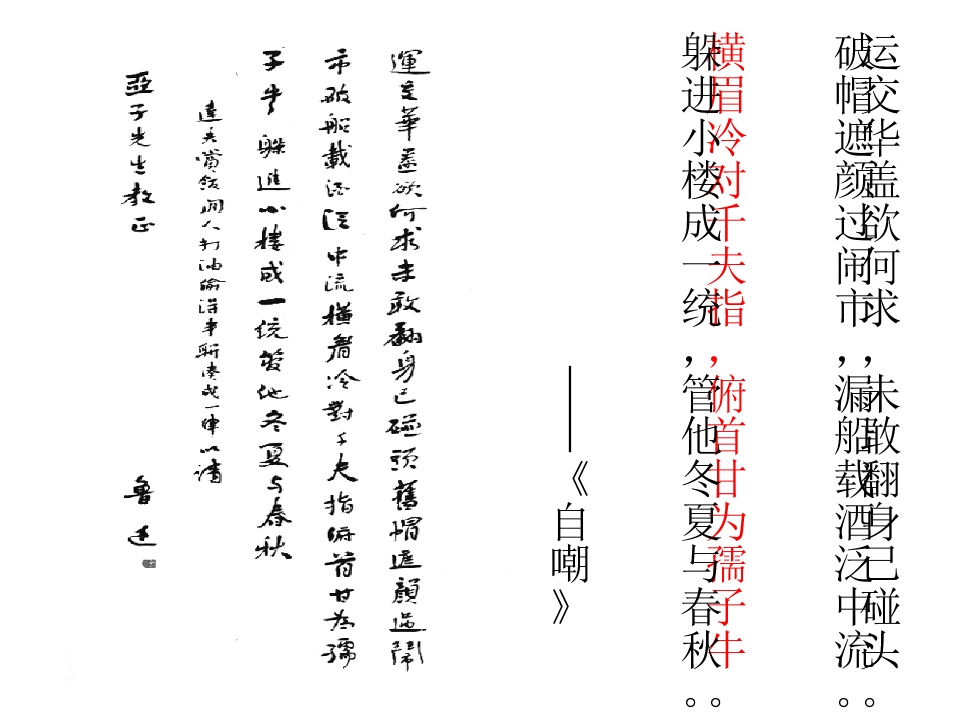 运交华盖欲何求，未敢翻身己碰头。
破帽遮颜过闹市，漏船载酒泛中流。
横眉冷对千夫指，俯首甘为孺子牛。
躲进小楼成一统，管他冬夏与春秋。
——《自嘲》
運交華蓋欲何求未敢翻身已碰頭舊帽遮顏過鬧
市破船載酒泛中流橫眉冷對千夫指俯首甘為孺
子牛躲進小樓成一統管他冬夏与春秋
達夫賞飯閒人打油偷得半聯湊成一律以請
亞子先生教正
魯迅